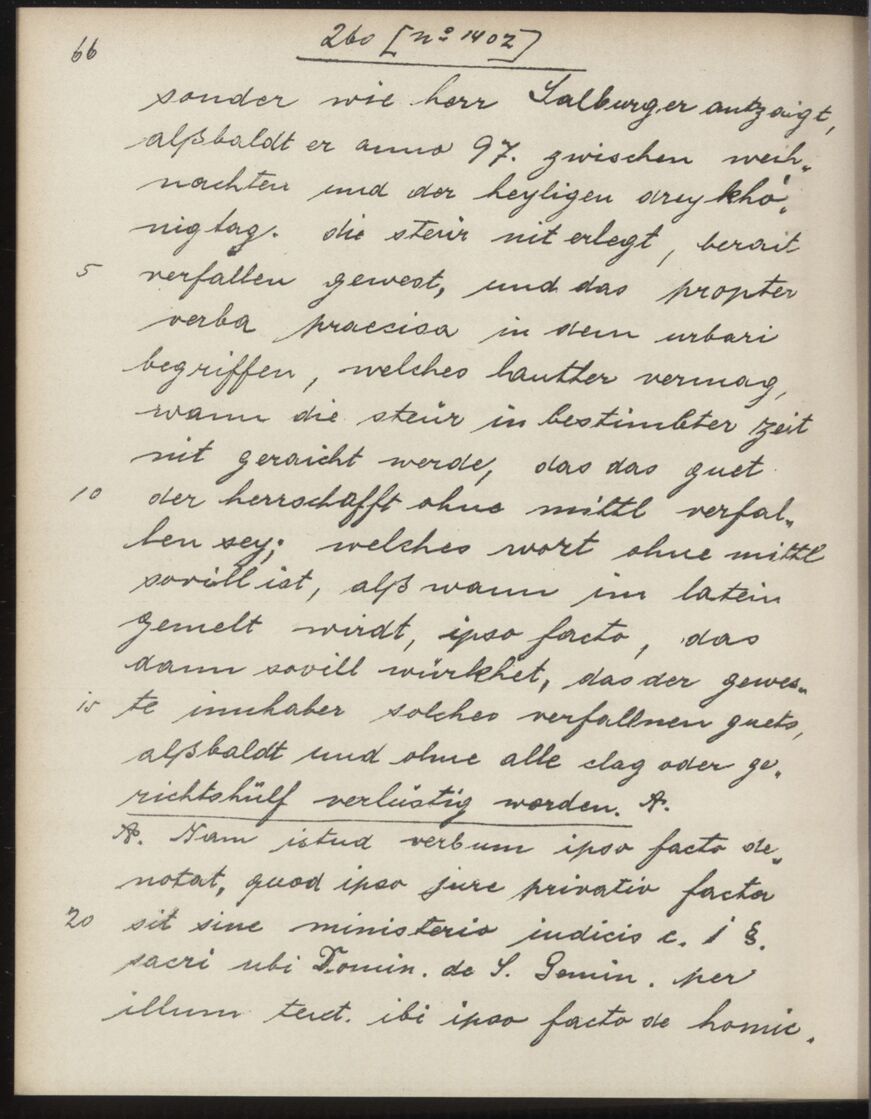 66
260 [nº 1402]
sonder wie herr Salburger antzaigt,
alßbaldt er anno 97. zwischen weih„
nachten und der heyligen drey khö„
nigtag. die steür nit erlegt, berait
5 verfallen gewest, und das propter
verba praecisa in dem urbari
begriffen, welches lautter vermag,
wann die steür in bestimbter zeit
nit geraicht werde, das das guet
10 der herrschafft ohne mittl verfal„
len sey; welches wort ohne mittl
sovill ist, alß wann im latein
gemelt wirdt, ipso facto, das
dann sovill würkhet, das der gewes„
15 te innhaber solches verfallnen guets,
alßbaldt und ohne alle clag oder ge„
richtshülf verlüstig worden. A.
A. Nam istud verbum ipso facto de„
notat, quod ipso jure privatio facta
20 sit sine ministerio iudicis c. 1 §.
sacri ubi Domin. de S. Gemin. per
illum text. ibi ipso facto de homic.